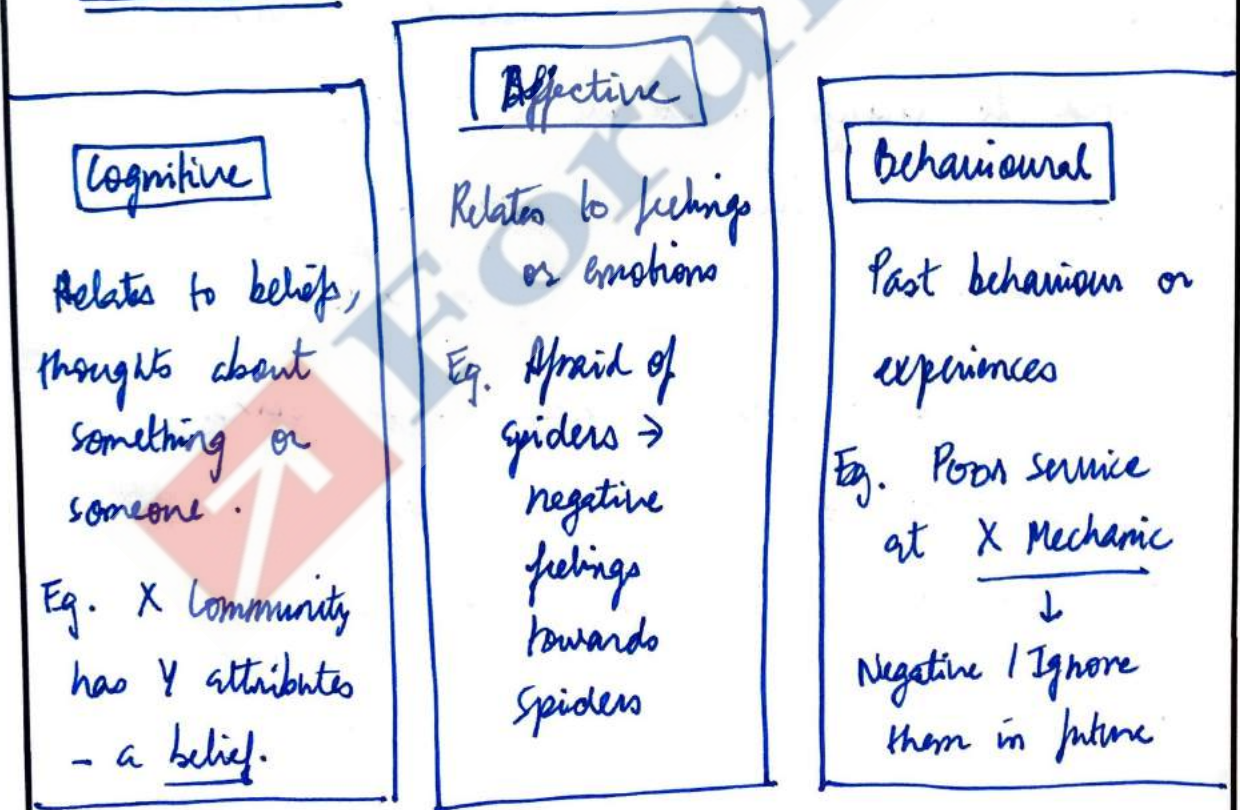 Cognitive
Relates to beliefs,
thoughts about
something or
someone.
Eg. X Community
has Y attributes
- a belief.
Affective
Relates to feelings
or emotions
Eg. Afraid of
spiders →
negative
feelings
towards
spiders
Behavioural
Past behaviour or
experiences
Eg. Poor service
at X Mechanic
↓
Negative / Ignore
them in future
Foru